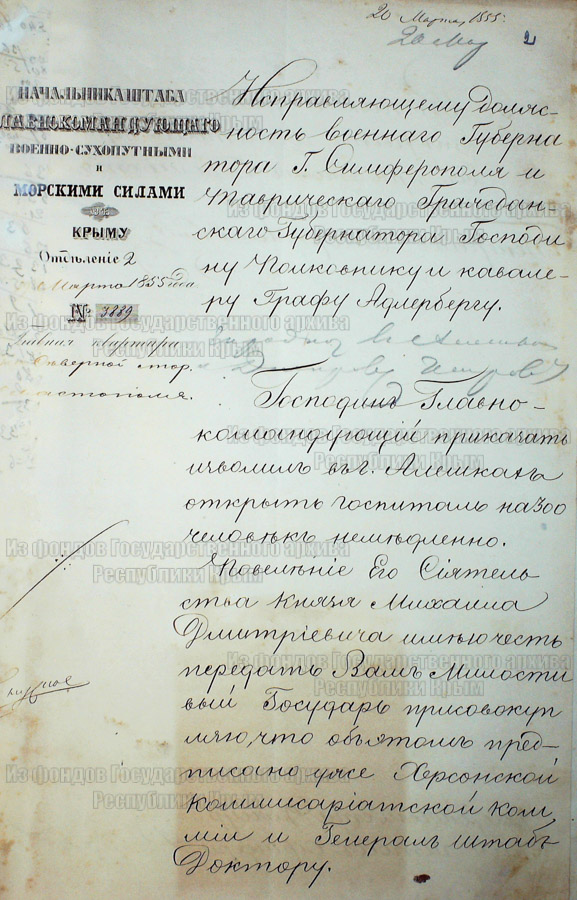 20 Марта, 1855.
2
НАЧАЛЬНИКА ШТАБА
ГЛАВНОКОМАНДУЮЩАГО
ВОЕННО-СУХОПУТНЫМИ
И
МОРСКИМИ СИЛАМИ
въ
КРЫМУ
Отдѣленіе 2
Марта 1855 года.
№ 3889
Главная квартира
Сѣверной стор.
Исправляющему долж-
ность военнаго Губерна
тора Г. Симферополя и
Таврическаго Граждан-
скаго Губернатора Господи
ну Полковнику и кавале-
ру Графу Адлербергу.
Господинъ Главно-
командующій приказать
изволилъ въ г. Алешкахъ
открыть госпиталь на 300
человѣкъ немедленно.
Повелѣніе Его Сіятель
ства Князя Михаила
Дмитріевича имѣю честь
передать Вамъ Милости
вый Государь присовокуп
ляю, что объ этомъ пред-
писано уже Херсонской
Коммисаріатской Ком
міи и Генералъ штабъ
Доктору.
Из фондов Государственного архива
Республики Крым